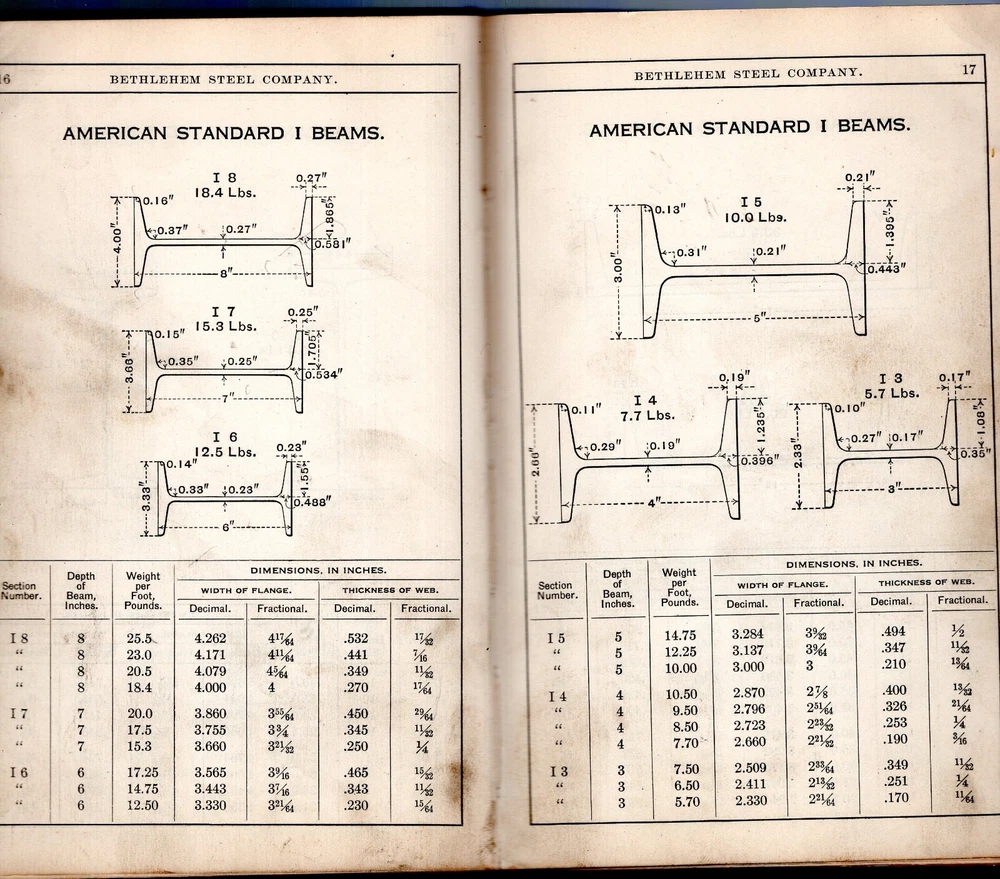 16
BETHLEHEM STEEL COMPANY.
AMERICAN STANDARD I BEAMS.
I 8
18.4 Lbs.
0.27"
0.16"
4.00"
0.37"
0.27"
1.865"
0.581"
8"
I 7
15.3 Lbs.
0.25"
0.15"
3.66"
0.35"
0.25"
1.705"
0.534"
7"
I 6
12.5 Lbs.
0.23"
0.14"
3.33"
0.33"
0.23"
1.55"
0.488"
6"
Section Number. Depth of Beam, Inches. Weight per Foot, Pounds. DIMENSIONS, IN INCHES.
WIDTH OF FLANGE. THICKNESS OF WEB.
Decimal. Fractional. Decimal. Fractional.
I 8 8 25.5 4.262 4 17/64 .532 17/32
" 8 23.0 4.171 4 11/64 .441 7/16
" 8 20.5 4.079 4 5/64 .349 11/32
" 8 18.4 4.000 4 .270 17/64
I 7 7 20.0 3.860 3 55/64 .450 29/64
" 7 17.5 3.755 3 3/4 .345 11/32
" 7 15.3 3.660 3 21/32 .250 1/4
I 6 6 17.25 3.565 3 9/16 .465 15/32
" 6 14.75 3.443 3 7/16 .343 11/32
" 6 12.50 3.330 3 21/64 .230 15/64
BETHLEHEM STEEL COMPANY. 17
AMERICAN STANDARD I BEAMS.
I 5
10.0 Lbs.
0.21"
0.13"
3.00"
0.31"
0.21"
1.395"
0.443"
5"
I 4
7.7 Lbs.
0.19"
0.11"
2.66"
0.29"
0.19"
1.235"
0.396"
4"
I 3
5.7 Lbs.
0.17"
0.10"
2.33"
0.27"
0.17"
1.08"
0.35"
3"
Section Number. Depth of Beam, Inches. Weight per Foot, Pounds. DIMENSIONS, IN INCHES.
WIDTH OF FLANGE. THICKNESS OF WEB.
Decimal. Fractional. Decimal. Fractional.
I 5 5 14.75 3.284 3 9/32 .494 1/2
" 5 12.25 3.137 3 9/64 .347 11/32
" 5 10.00 3.000 3 .210 13/64
I 4 4 10.50 2.870 2 7/8 .400 13/32
" 4 9.50 2.796 2 51/64 .326 21/64
" 4 8.50 2.723 2 23/32 .253 1/4
" 4 7.70 2.660 2 21/32 .190 3/16
I 3 3 7.50 2.509 2 33/64 .349 11/32
" 3 6.50 2.411 2 13/32 .251 1/4
" 3 5.70 2.330 2 21/64 .170 11/64